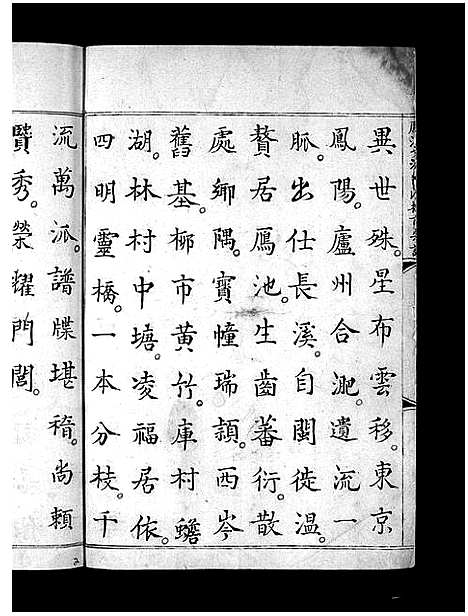 異世殊。星布雲移。東京
鳳陽。廬州合淝。遺流一
脈。出仕長溪。自閩徙温。
贅居鴈池。生齒蕃衍。散
處鄉隅。寶幢瑞頴。西岑
舊基。柳市黃竹。庫村蟾
湖。林村中塘。凌福居依。
四明靈橋。一本分枝。千
流萬派。譜牒堪稽。尚賴
賢秀。榮耀門閭。